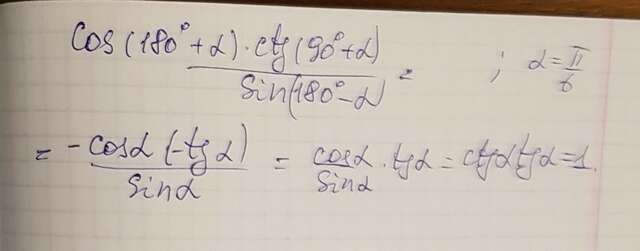 cos(180°+α)·ctg(90°+α) / sin(180°-α) = ; α = π/6
= -cosα(-tgα) / sinα = cosα/sinα · tgα = ctgα tgα = 1.